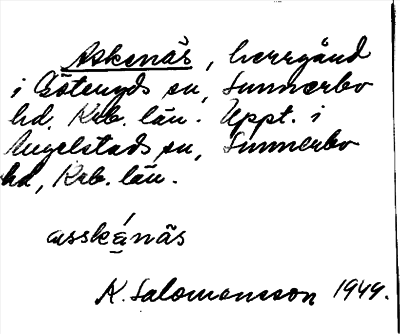 Askenäs, herrgård
i Göteryds sn, Sunnerbo
hd. Krb. län. Uppt. i
Angelstads sn, Sunnerbo
hd, Krb. län.
asskánäs
K. Salomonsson 1949.